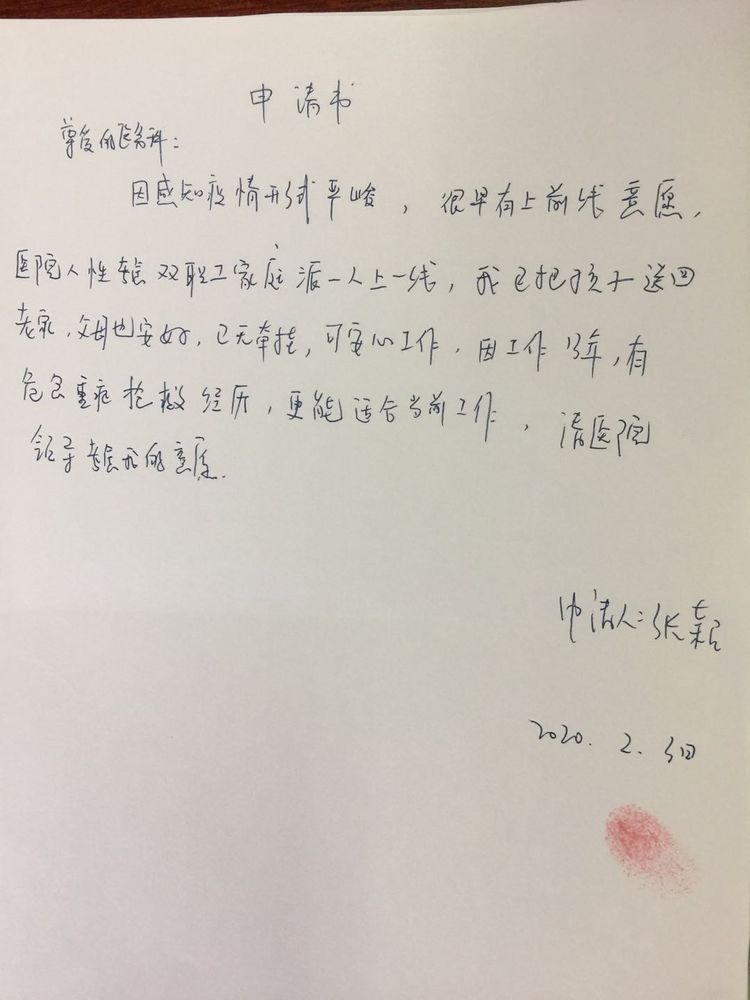 申请书
尊敬的医务科：
因感知疫情形式严峻，很早有上前线意愿，
医院人性考虑双职工家庭派一人上一线，我已把孩子送回
老家，父母也安好，已无牵挂，可安心工作，因工作13年，有
危急重症抢救经历，更能适合当前工作，请医院
领导考虑我的意愿.
申请人：张颖
2020.2.3日